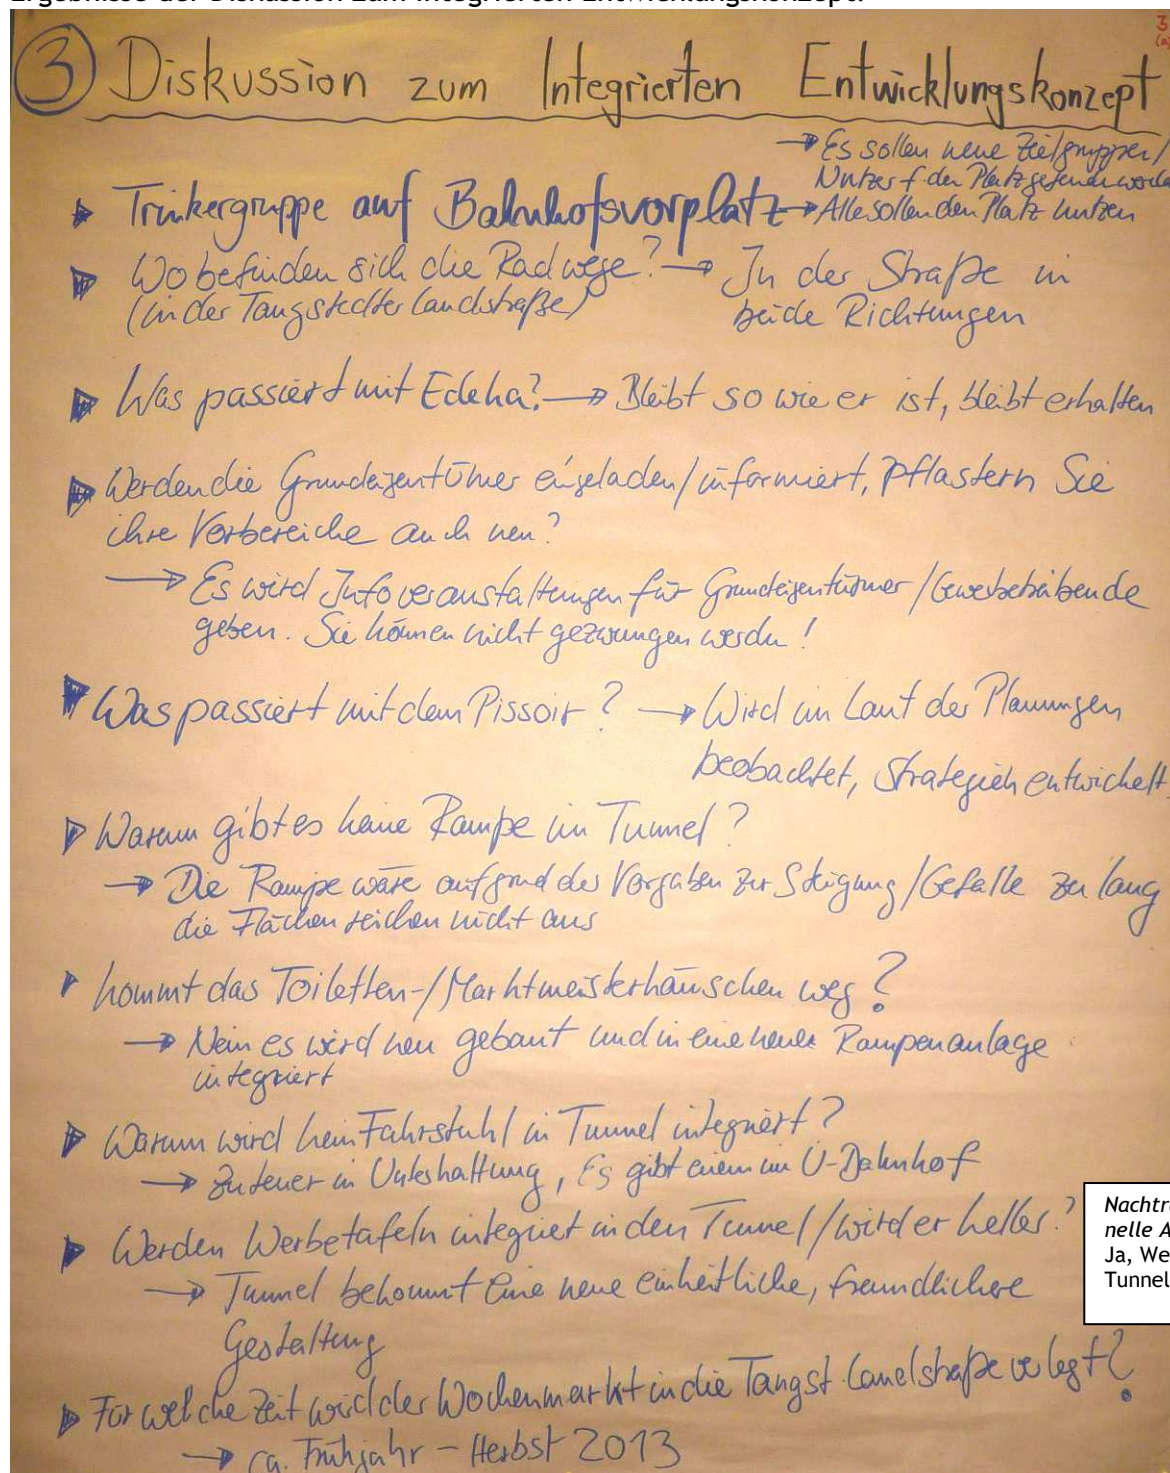 Ergebnisse der Diskussion zum Integrierten Entwicklungskonzept:
3
(a)
3 Diskussion zum Integrierten Entwicklungskonzept
→ Es sollen neue Zielgruppen/
Nutzer f. den Platz gefunden werden
Trinkergruppe auf Bahnhofsvorplatz → Alle sollen den Platz nutzen
Wo befinden sich die Radwege? → In der Straße in
(in der Tangstedter Landstraße) beide Richtungen
Was passiert mit Edeka? → Bleibt so wie er ist, bleibt erhalten
Werden die Grundeigentümer eingeladen/informiert, pflastern Sie
ihre Vorbereiche auch neu?
→ Es wird Infoveranstaltungen für Grundeigentümer/Gewerbetreibende
geben. Sie können nicht gezwungen werden!
Was passiert mit dem Pissoir? → Wird im Lauf der Planungen
beobachtet, Strategien entwickelt
Warum gibt es keine Rampe im Tunnel?
→ Die Rampe wäre aufgrund der Vorgaben zur Steigung/Gefälle zu lang
die Flächen reichen nicht aus
kommt das Toiletten-/Marktmeisterhäuschen weg?
→ Nein es wird neu gebaut und in eine neue Rampenanlage
integriert
Warum wird kein Fahrstuhl in Tunnel integriert?
→ Zu teuer in Unterhaltung, Es gibt einen im U-Bahnhof
Werden Werbetafeln integriert in den Tunnel/wird er heller?
Nachtr
nelle A
Ja, We
Tunnel
→ Tunnel bekommt eine neue einheitliche, freundlichere
Gestaltung
Für welche Zeit wird der Wochenmarkt in die Tangst. Landstraße verlegt?
→ ca. Frühjahr – Herbst 2013